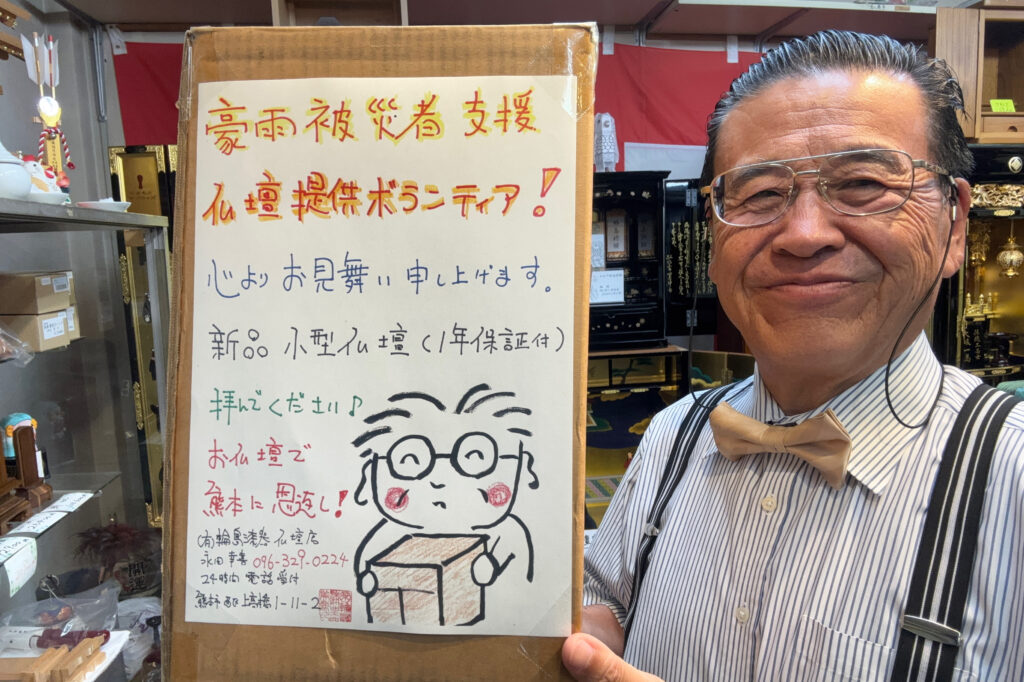 豪雨被災者支援
仏壇提供ボランティア!
心よりお見舞い申し上げます。
新品小型仏壇(1年保証付)
拝んでください♪
お仏壇で
熊本に恩返し!
(有)輪島漆器仏壇店
永田幸喜 096-329-0224
24時間電話受付
熊本市西区上高橋1-11-2